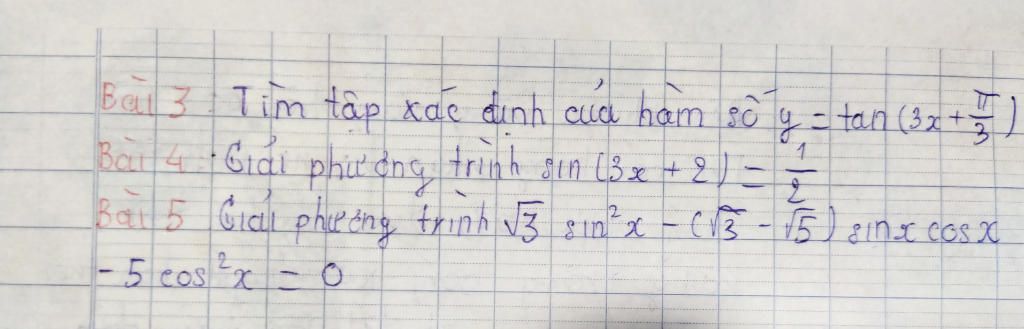 Bài 3 : Tìm tập xác định của hàm số y = tan(3x + π/3)
Bài 4 : Giải phương trình sin (3x + 2) = 1/2
Bài 5 Giải phương trình √3 sin²x - (√3 - √5) sinx cosx
- 5 cos²x = 0